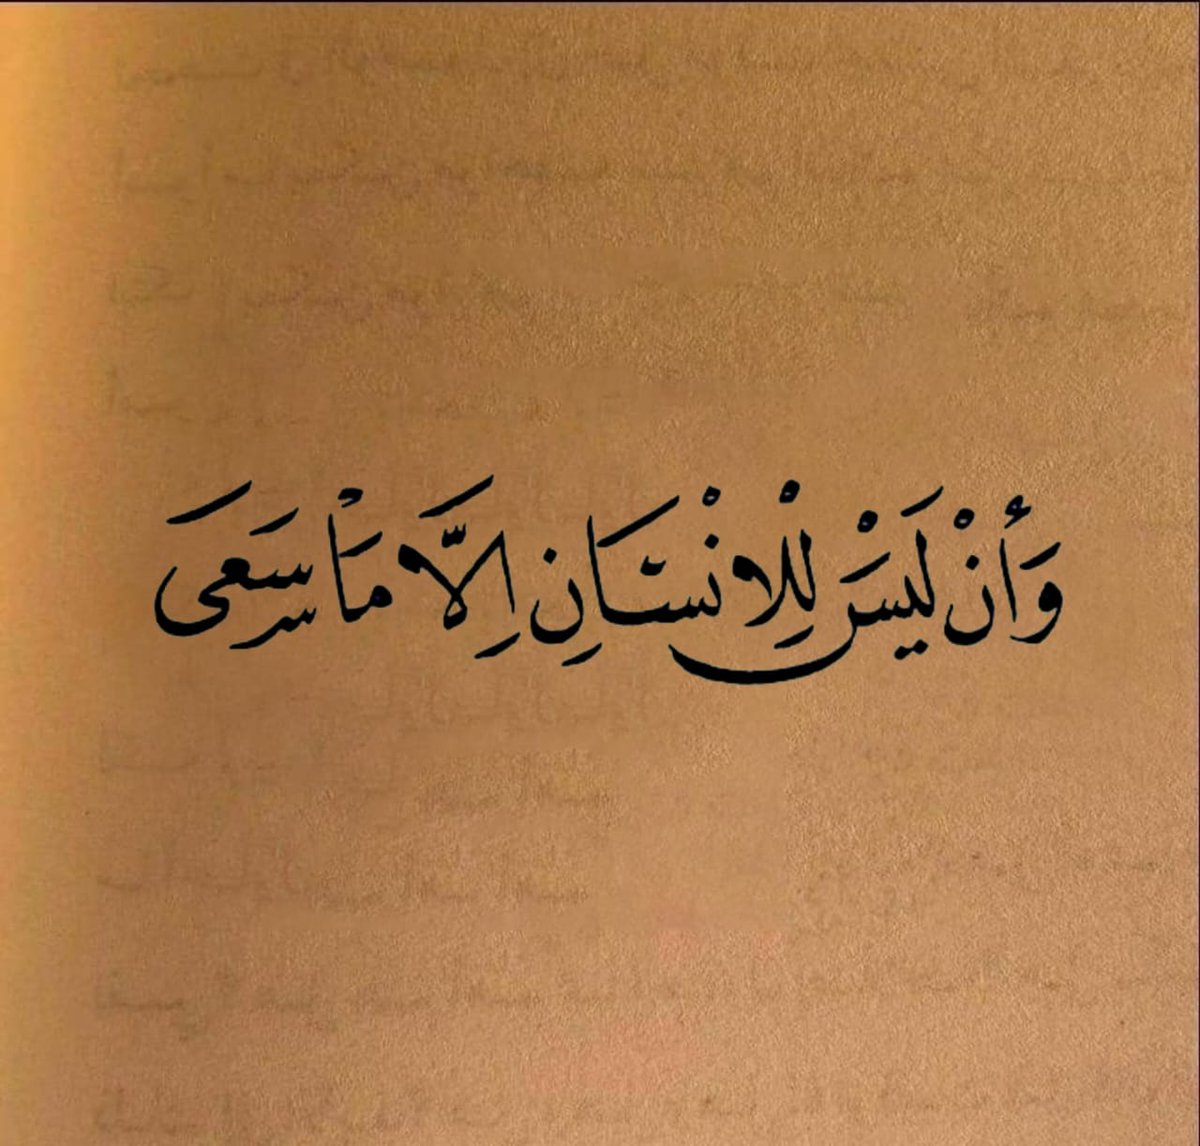 وَأَنْ لَيْسَ لِلْاِنْسَانِ اِلَّا مَا سَعَى